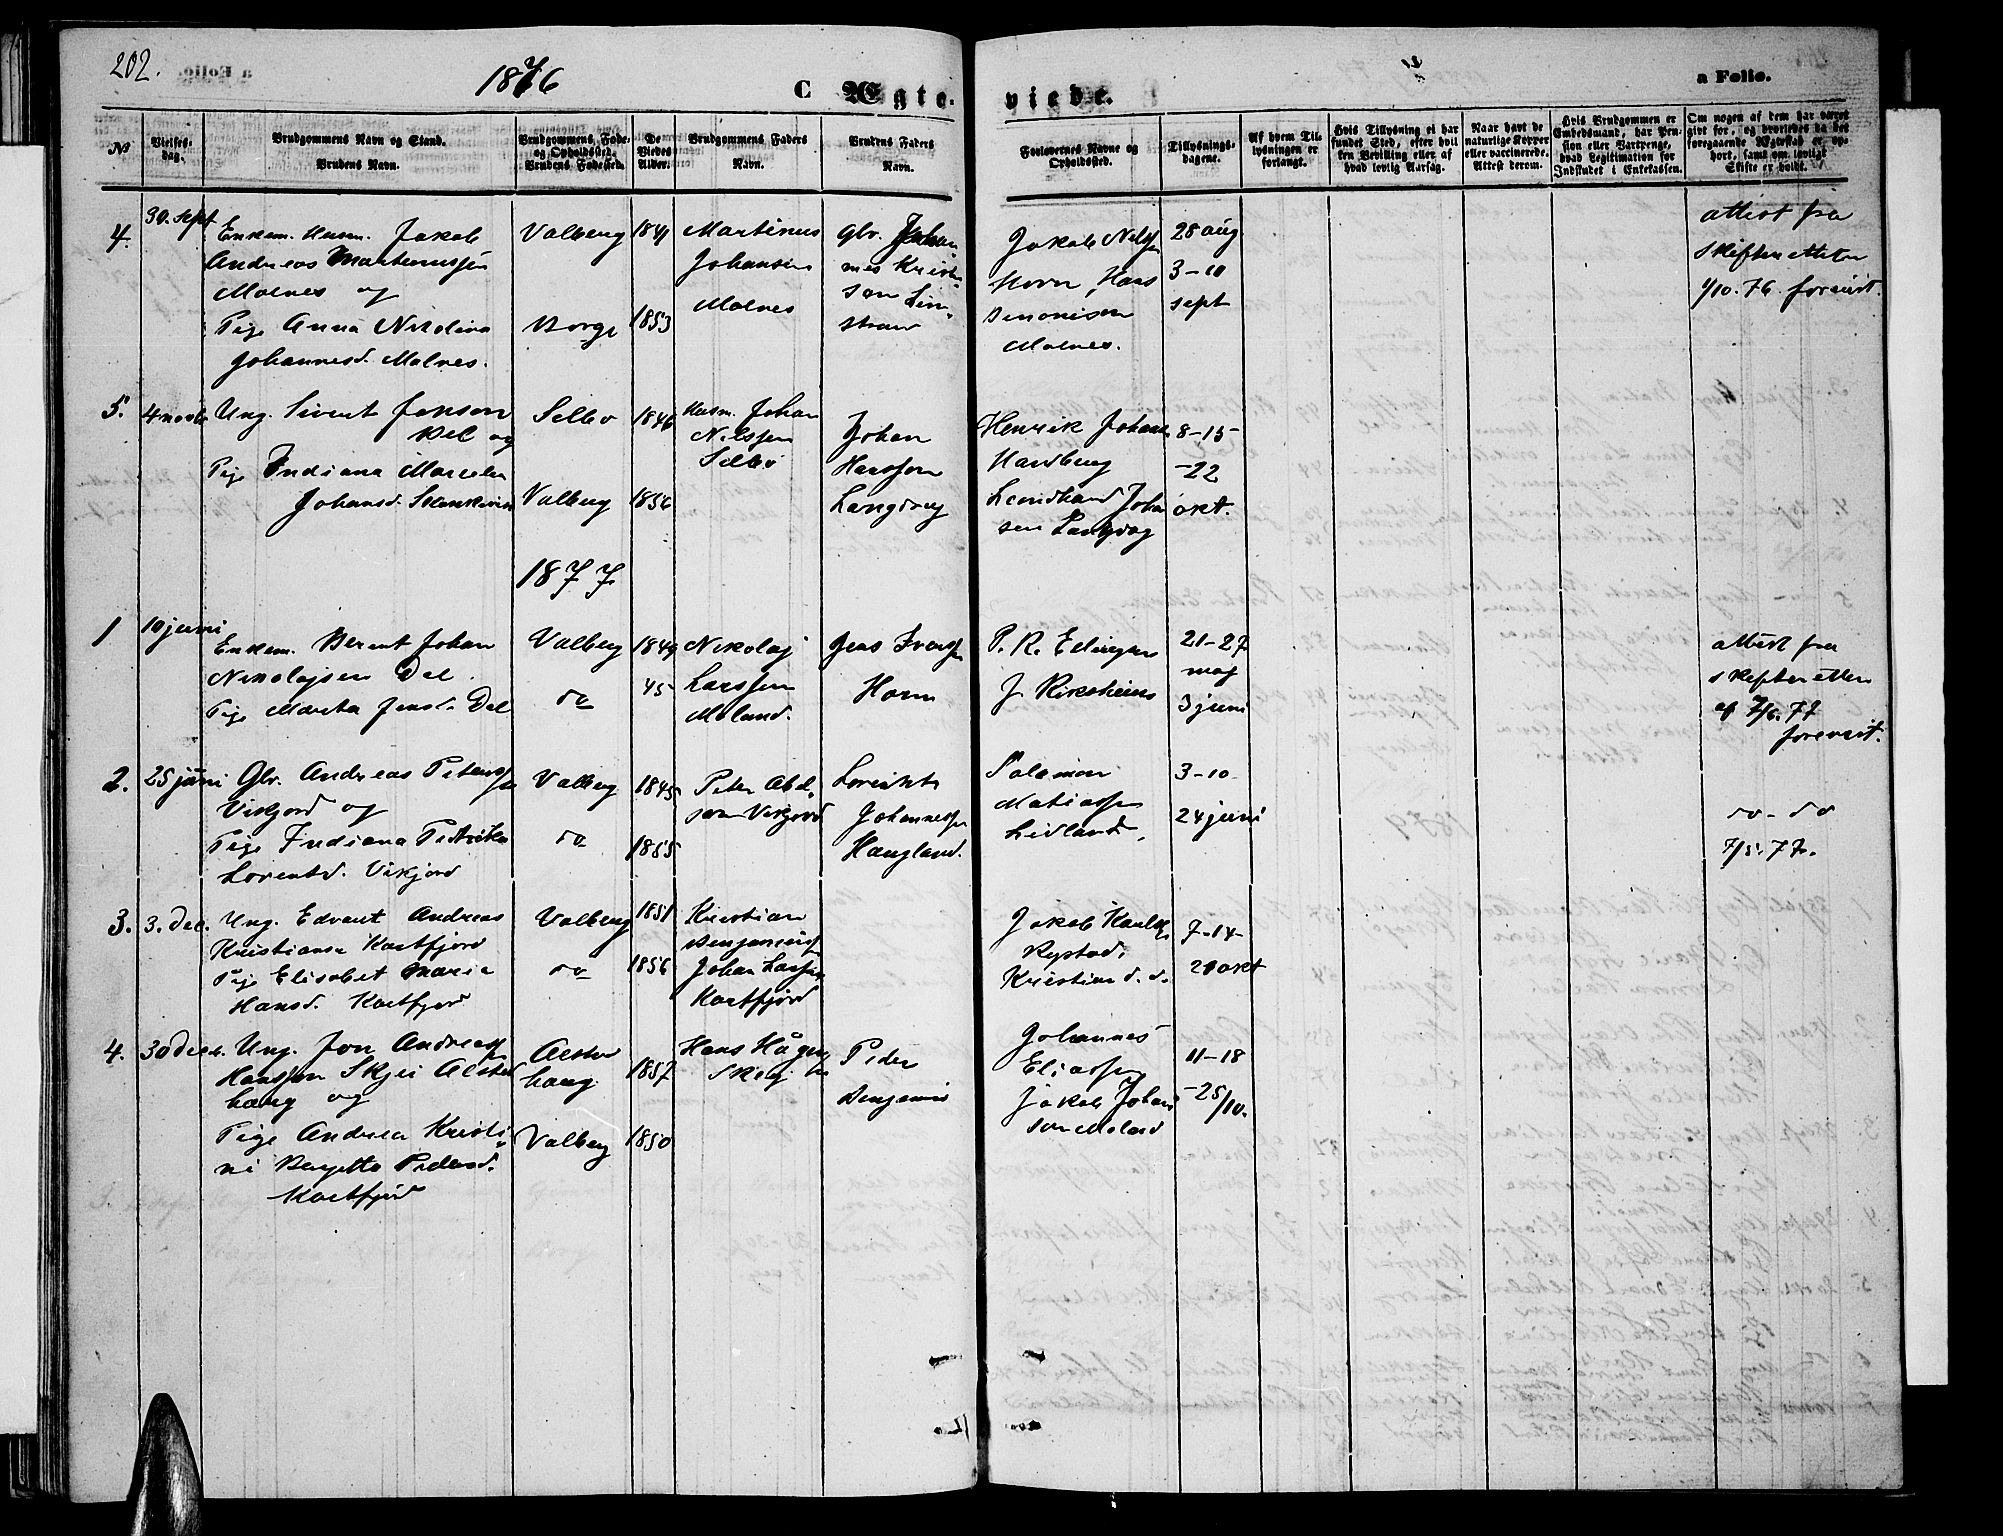 202.
1876
C Ægte-
viede.
a Folio.
№
Vielses-
dag.
Brudgommens Navn og Stand.
Brudens Navn.
Brudgommens Føde-
og Opholdssted.
Brudens Fødested.
De
Viedes
Alder.
Brudgommens Faders
Navn.
Brudens Faders
Navn.
Forlovernes Navne og
Opholdssted.
Tillysnings-
dagene.
Af hvem Til-
lysningen er
forlangt.
Hvis Tillysning ei har
fundet Sted, efter hvil
ken Bevilling eller af
hvad lovlig Aarsag.
Naar havt de
naturlige Kopper
eller vaccinerede.
Attest derom.
Hvis Brudgommen er
Embedsmand, har Pen-
sion eller Vartpenge,
hvad Legitimation for
Indskudet i Enkekassen.
Om nogen af dem har været
gift før, og hvorledes da det
foregaaende Ægteskab er op-
hørt, samt om lovligt
Skifte er holdt.
4.
30. sept
Enkem. Husm. Jakob
Andreas Martinussen
Molnes og
Pige Anna Nikolina
Johannesd. Molnes.
Valberg
Borge
1841
1853
Martinus
Johansen
Molnes
Gbr. Johan
nes Krist
sen Lim
strand
Jakob Nilssen
Horn, Hans
Simonisen
Molnes.
28 aug
3-10
sept
attest fra
skifteretten
1/10. 76. forevist.
5.
4 novb
Ung. Sivert Jonson
Del og
Pige Indiana Marcelie
Johansd.
Selbo
Valberg
1846
1856
Husm. Johan
Nilssen
Selbo
Johan
Hansson
Langvag
Henrik Johans
Hardberg
Leonhard Johan
sen Langvag
8-15-
-22
okt.
1877
1
10 juni
Enkem. Berent Johan
Nikolajsen Del.
Pige Marta Jensd. Del
Valberg
do
1849
45
Nikolaj
Larssen
Moland.
Jens Iverss
Horn
P. R. Ellingsen
J. Rikstheims
21-27
maj
3 juni
attest fra
skifteretten
af 7/6. 77
forevist.
2.
25 juni
Gbr. Andreas Peterss
Vikjord og
Pige Indiana Petrika
Lorentsd. Vikjord
Valberg
do
1845
1855
Peter Abel
son Vikjord
Lorents
Johannessen
Haugland.
Salamon
Matiassen
Lidland,
3-10
24 juni
do - do
7/5. 77.
3.
3. dec.
Ung. Edvart Andreas
Kristiansen Kartfjord
Pige Elisabet Maria
Hansd. Kartfjord
Valberg
do
1851
1856
Kristian
Benjaminss
Johan Larssen
Kartfjord
Jakob Karlss
Rystad.
Kristian d. d.
7-14-
21 okt
4.
30 decb.
Ung. Jon Andreass
Hanssen Skjei Alsta
haug og
Pige Andrea Kristi
ne Bergitte Pedersd.
Kartfjord
Alsta
haug
Valberg
1857
1850
Hans Hågen
Skeij
Peder
Benjamin
Johannes
Eliassen
Jakob Johan
sen Moland
11-18
-25/10.